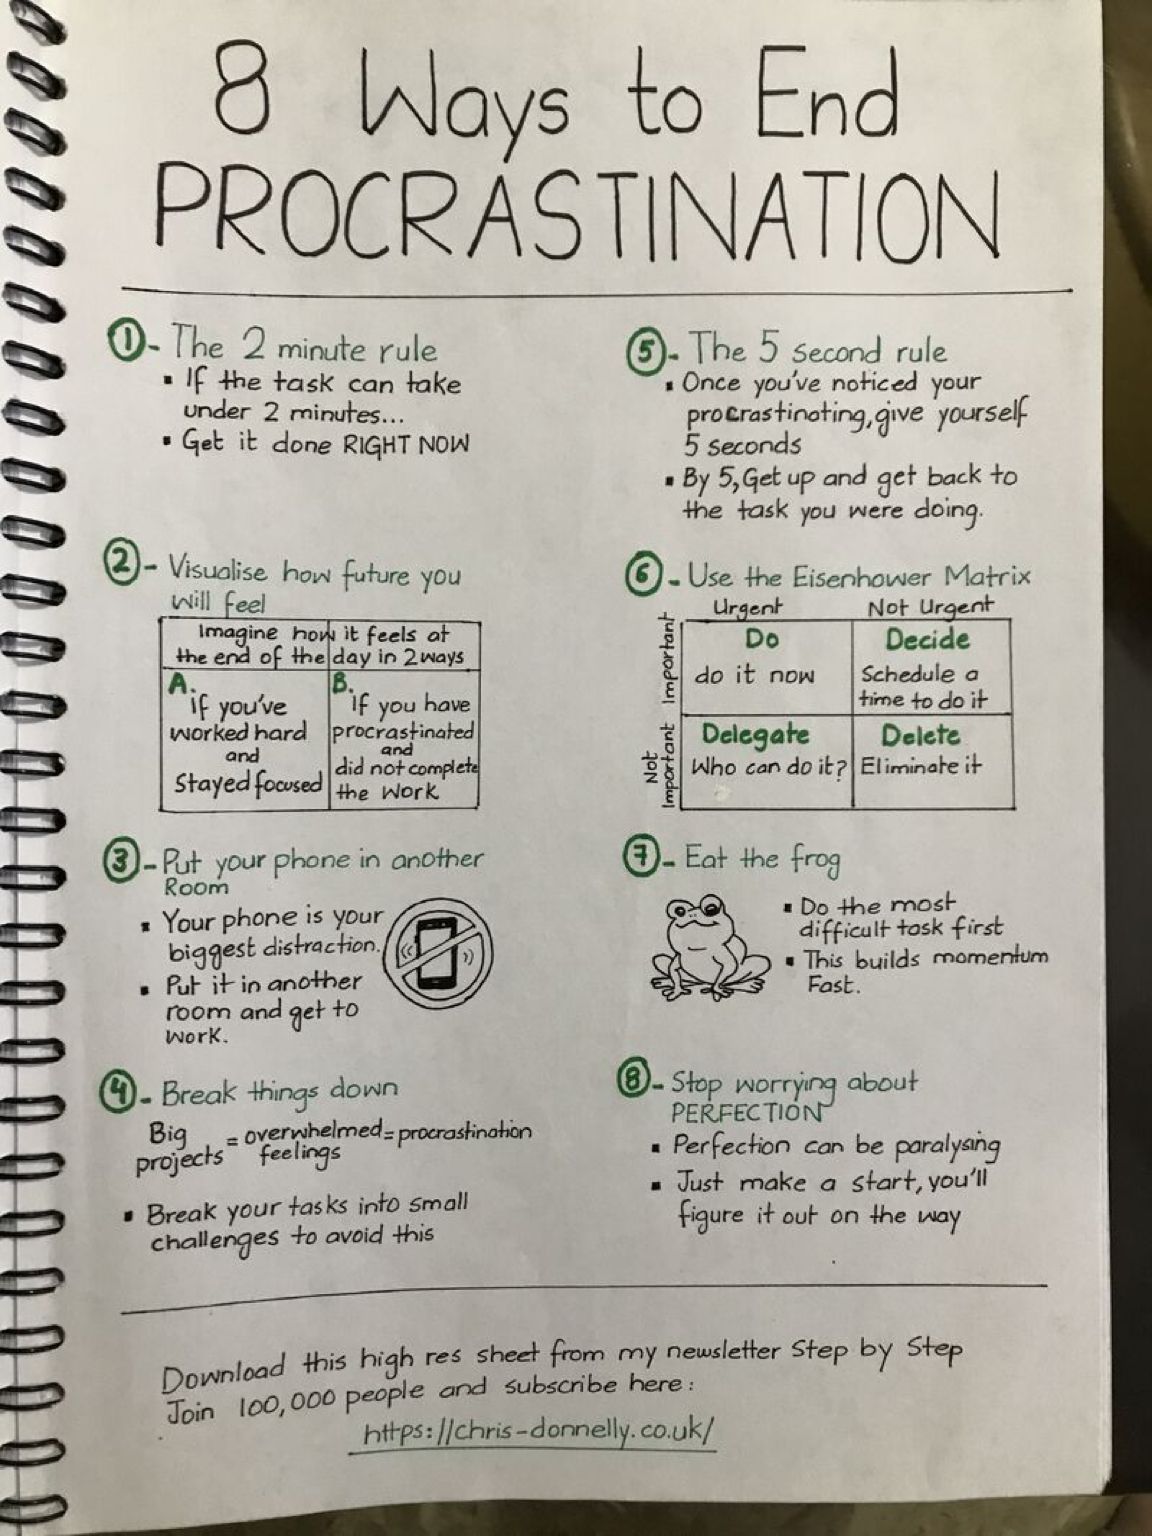 8 Ways to End
PROCRASTINATION
1- The 2 minute rule
▪ If the task can take
under 2 minutes...
▪ Get it done RIGHT NOW
2- Visualise how future you
will feel
Imagine how it feels at
the end of the day in 2 ways
A.
If you've
worked hard
and
Stayed focused
B.
If you have
procrastinated
and
did not complete
the work
3- Put your phone in another
Room
▪ Your phone is your
biggest distraction.
▪ Put it in another
room and get to
work.
4- Break things down
Big = overwhelmed = procrastination
projects feelings
▪ Break your tasks into small
challenges to avoid this
5- The 5 second rule
▪ Once you've noticed your
procrastinating, give yourself
5 seconds
▪ By 5, Get up and get back to
the task you were doing.
6- Use the Eisenhower Matrix
Urgent Not Urgent
Important
Do
do it now
Decide
Schedule a
time to do it
Not
Important
Delegate
Who can do it?
Delete
Eliminate it
7- Eat the frog
▪ Do the most
difficult task first
▪ This builds momentum
Fast.
8- Stop worrying about
PERFECTION
▪ Perfection can be paralysing
▪ Just make a start, you'll
figure it out on the way
Download this high res sheet from my newsletter Step by Step
Join 100,000 people and subscribe here:
https://chris-donnelly.co.uk/